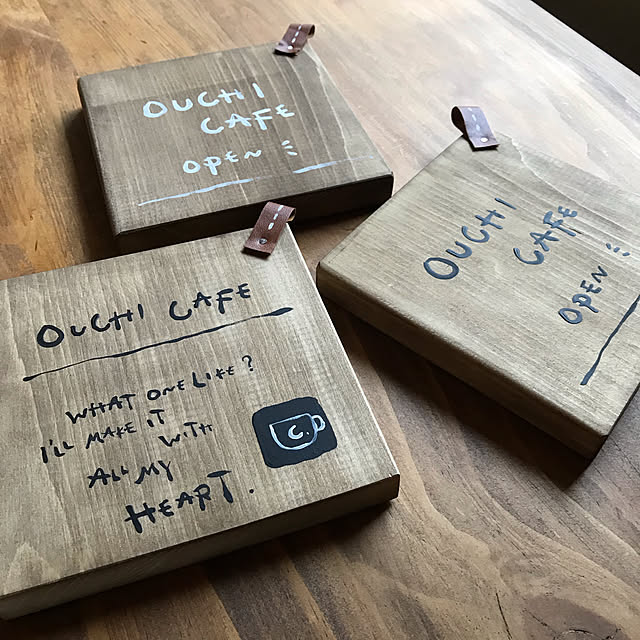 OUCHI
CAFE
OPEN
OUCHI
CAFE
OPEN
OUCHI CAFE
WHAT ONE LIKE?
I'LL MAKE IT
WITH
ALL MY
HEART.
C.